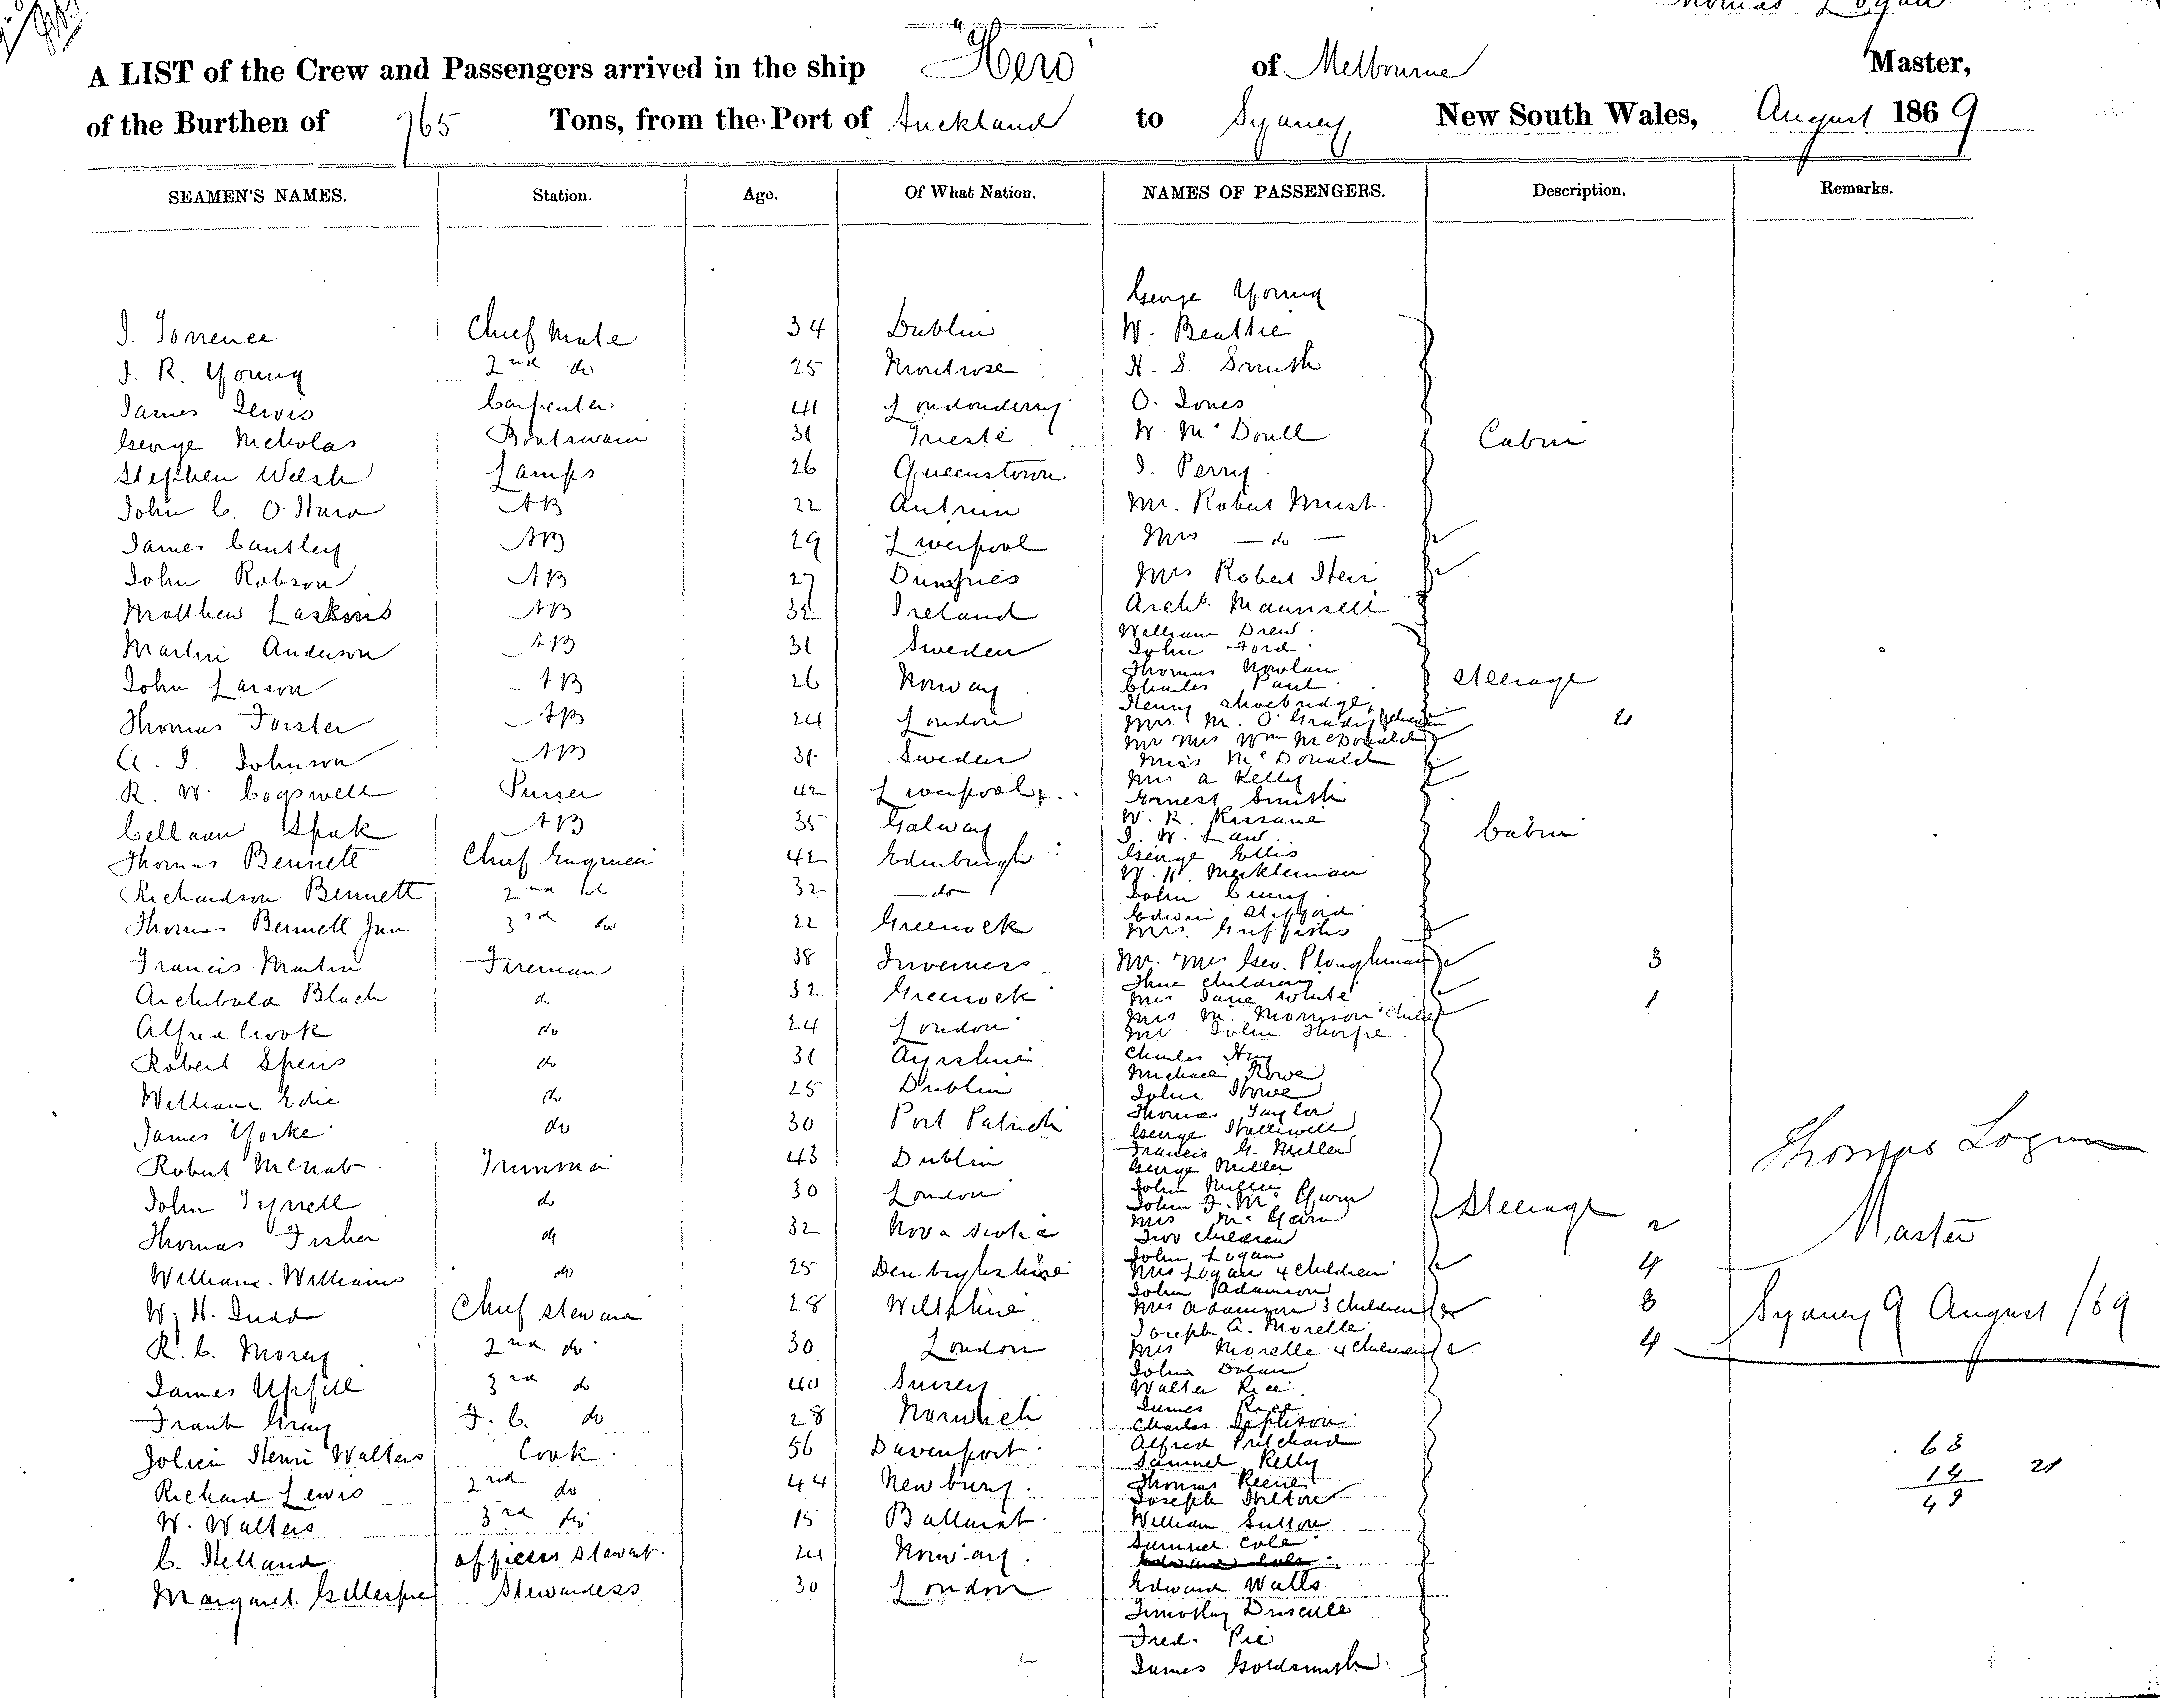 Thomas Logan
A LIST of the Crew and Passengers arrived in the ship "Hero" of Melbourne Master,
of the Burthen of 965 Tons, from the Port of Auckland to Sydney, New South Wales, August 1869
SEAMEN'S NAMES. Station. Age. Of What Nation. NAMES OF PASSENGERS. Description. Remarks.
George Young
J. Torrence Chief Mate 34 Dublin W. Beattie
J. R. Young 2nd do 25 Montrose H. S. Smith
James Lewis Carpenter 41 Londonderry O. Jones
George Nicholas Boatswain 31 Trieste W. McDoull Cabin
Stephen Welsh Lamps 26 Queenstown J. Perry
John C. O'Hara AB 22 Antrim Mr. Robert Must
James Cautley AB 29 Liverpool Mrs — do —
John Robson AB 27 Dumfries Mrs Robert Heir
Matthew Laskins AB 32 Ireland Archd. Maunsell
William Drew
Martin Anderson AB 31 Sweden John Ford
Thomas Nowlan
John Larson AB 26 Norway Charles Paul Steerage
Henry Shoebridge
Thomas Forster AB 24 London Mrs M. O'Grady 2 children 2
Mr Mrs Wm McDonald
A. J. Johnson AB 31 Sweden Miss McDonald
Mrs A Kelly
R. W. Cogswell Purser 42 Liverpool Ernest Smith
W. R. Kissane
Spak AB 35 Galway J. W. Law Cabin
Thomas Bennett Chief Engineer 42 Edinburgh George Ellis
W. H. Meikleman
Richardson Bennett 2nd do 32 — do — John Cuny
Edwin Stafford
Thomas Bennett Jun 3rd do 22 Greenock Mrs. Griffiths
Francis Martin Fireman 38 Inverness Mr. Mrs Geo. Ploughman 3
Three children
Archibald Black do 32 Greenock Mrs Jane White
Mrs M. Morrison child 1
Alfred Crook do 24 London Mr John Thorpe
Robert Speirs do 31 Ayrshire Charles
Michael Rowe
William Edie do 25 Dublin John Howe
Thomas Taylor
James Yorke do 30 Port Patrick George Halliwell
Francis G. Miller
Robert McNab Trimmer 43 Dublin George Miller
John Miller
John Tyrrell do 30 London John F. McGwin Steerage
Mrs McGwin 2
Thomas Fisher do 32 Nova Scotia Two children
John Logan
William Williams do 25 Denbighshire Mrs Logan 4 children 4
John Adamson
W. H. Judd Chief Steward 28 Wiltshire Mrs Adamson 3 children 3
Joseph A. Morelle
R. C. Morey 2nd do 30 London Mrs Morelle 4 children 4
John Dolan
James Upfill 3rd do 40 Surrey Walter Rice
James Rice
Frank Gray F. C. do 28 Norwich Charles Jephson
Alfred Pritchard
Julien Henri Walters Cook 56 Davenport Samuel Kelly
Richard Lewis 2nd do 44 Newbury Thomas Keene
Joseph Hilton
W. Walters 3rd do 15 Ballarat William Sutton
Samuel Cole
C. Helland officers steward 24 Norway
Margaret Gillespie Stewardess 30 London Edward Walls
Timothy Driscoll
Fred. Pie
James Goldsmith
Thomas Logan
Master
Sydney 9 August /69
63
14 21
49